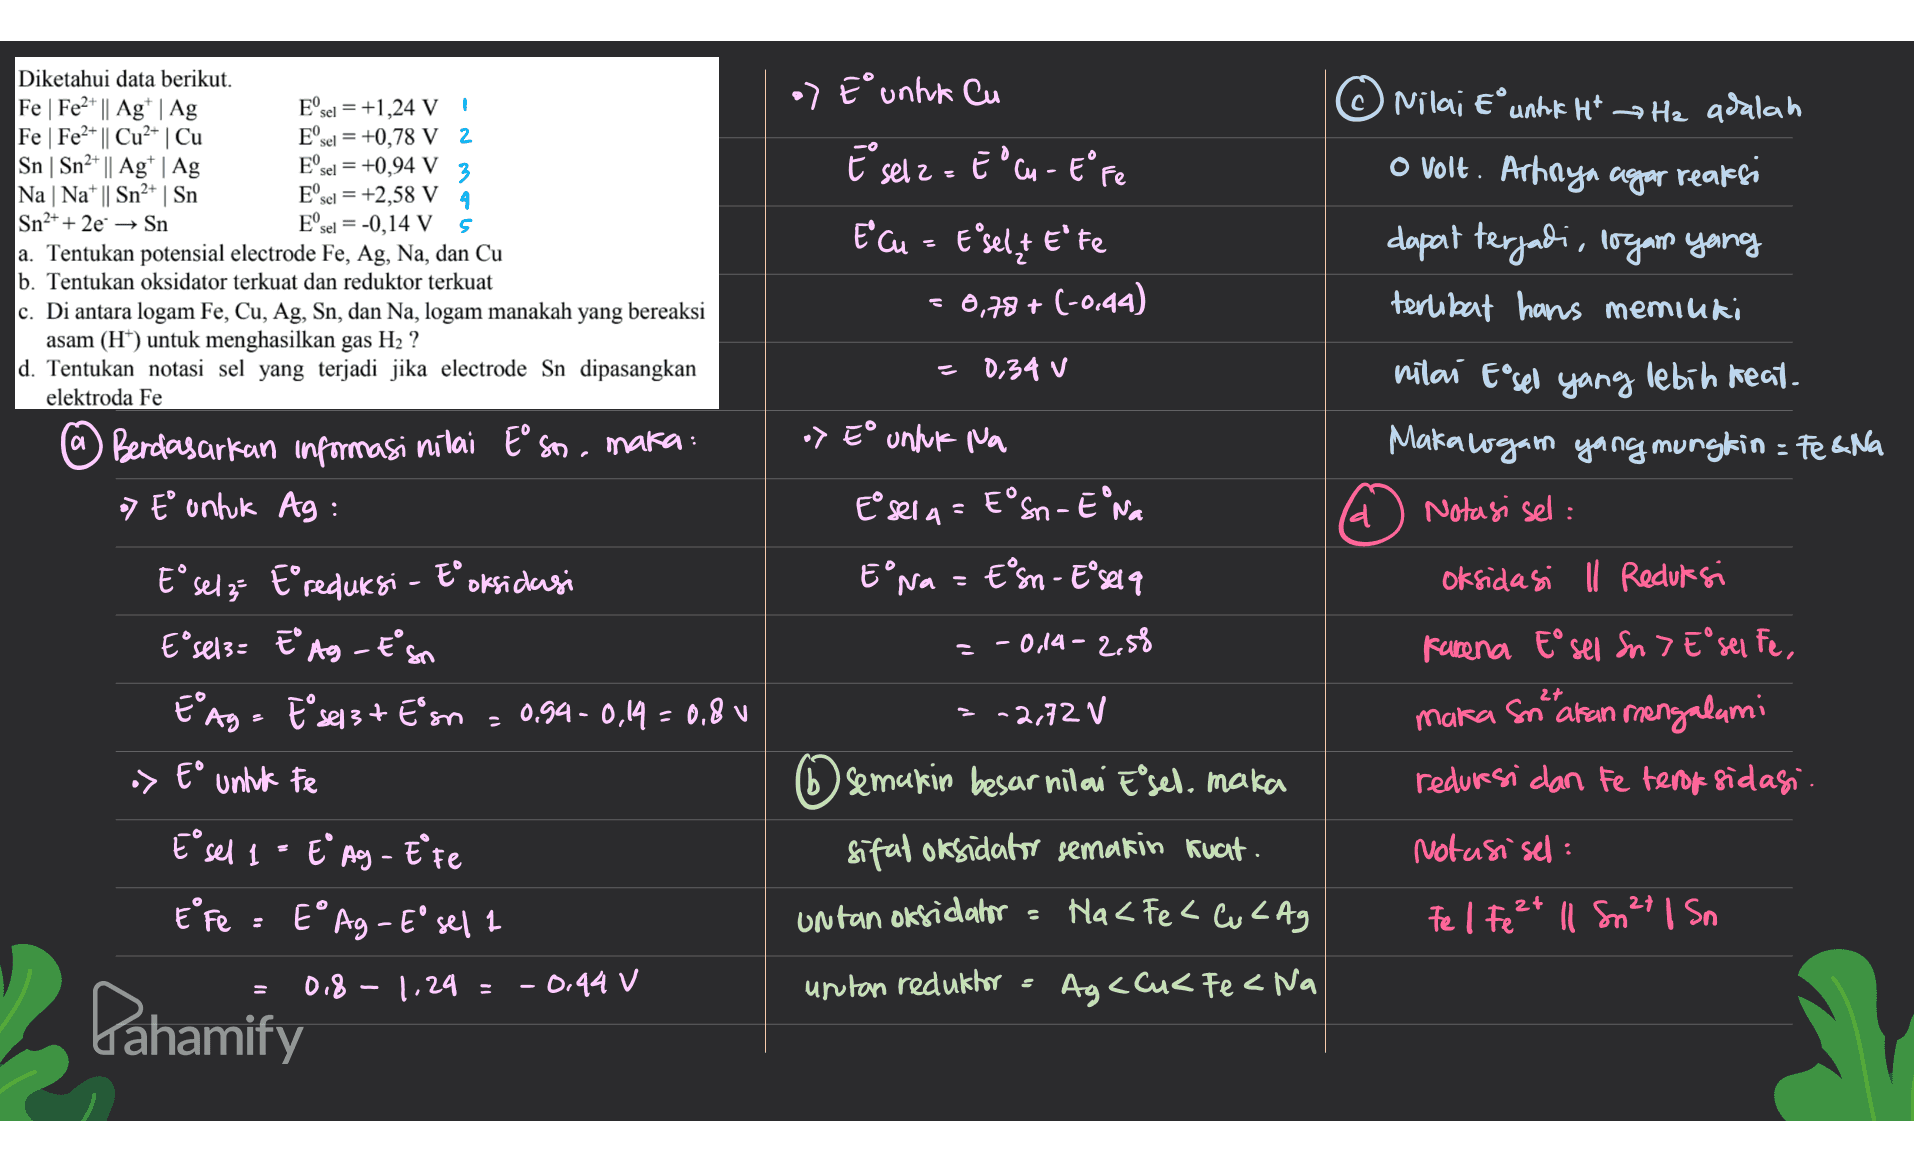 Diketahui data berikut.
Fe | Fe²⁺ || Ag⁺ | Ag E⁰sel = +1,24 V 1
Fe | Fe²⁺ || Cu²⁺ | Cu E⁰sel = +0,78 V 2
Sn | Sn²⁺ || Ag⁺ | Ag E⁰sel = +0,94 V 3
Na | Na⁺ || Sn²⁺ | Sn E⁰sel = +2,58 V 4
Sn²⁺ + 2e⁻ → Sn E⁰sel = -0,14 V 5
a. Tentukan potensial electrode Fe, Ag, Na, dan Cu
b. Tentukan oksidator terkuat dan reduktor terkuat
c. Di antara logam Fe, Cu, Ag, Sn, dan Na, logam manakah yang bereaksi
asam (H⁺) untuk menghasilkan gas H₂ ?
d. Tentukan notasi sel yang terjadi jika electrode Sn dipasangkan
elektroda Fe
(a) Berdasarkan informasi nilai E° Sn, maka:
•> E° untuk Ag :
E°sel 3 = E°reduksi - E°oksidasi
E°sel 3 = E°Ag - E°Sn
E°Ag = E°sel 3 + E°Sn = 0,94 - 0,14 = 0,8 V
•> E° untuk Fe
E°sel 1 = E°Ag - E°Fe
E°Fe = E°Ag - E°sel 1
= 0,8 - 1,24 = -0,44 V
Pahamify
•> E° untuk Cu
E°sel 2 = E°Cu - E°Fe
E°Cu = E°sel 2 + E°Fe
= 0,78 + (-0,44)
= 0,34 V
•> E° untuk Na
E°sel 4 = E°Sn - E°Na
E°Na = E°Sn - E°sel 4
= -0,14 - 2,58
= -2,72 V
(b) Semakin besar nilai E°sel, maka
sifat oksidator semakin kuat.
urutan oksidator = Na < Fe < Cu < Ag
urutan reduktor = Ag < Cu < Fe < Na
(c) Nilai E° untuk H⁺ → H₂ adalah
0 Volt. Artinya agar reaksi
dapat terjadi, logam yang
terlibat harus memiliki
nilai E°sel yang lebih kecil.
Maka logam yang mungkin = Fe & Na
(d) Notasi sel :
oksidasi || Reduksi
Karena E°sel Sn > E°sel Fe,
maka Sn²⁺ akan mengalami
reduksi dan Fe teroksidasi.
Notasi sel :
Fe | Fe²⁺ || Sn²⁺ | Sn